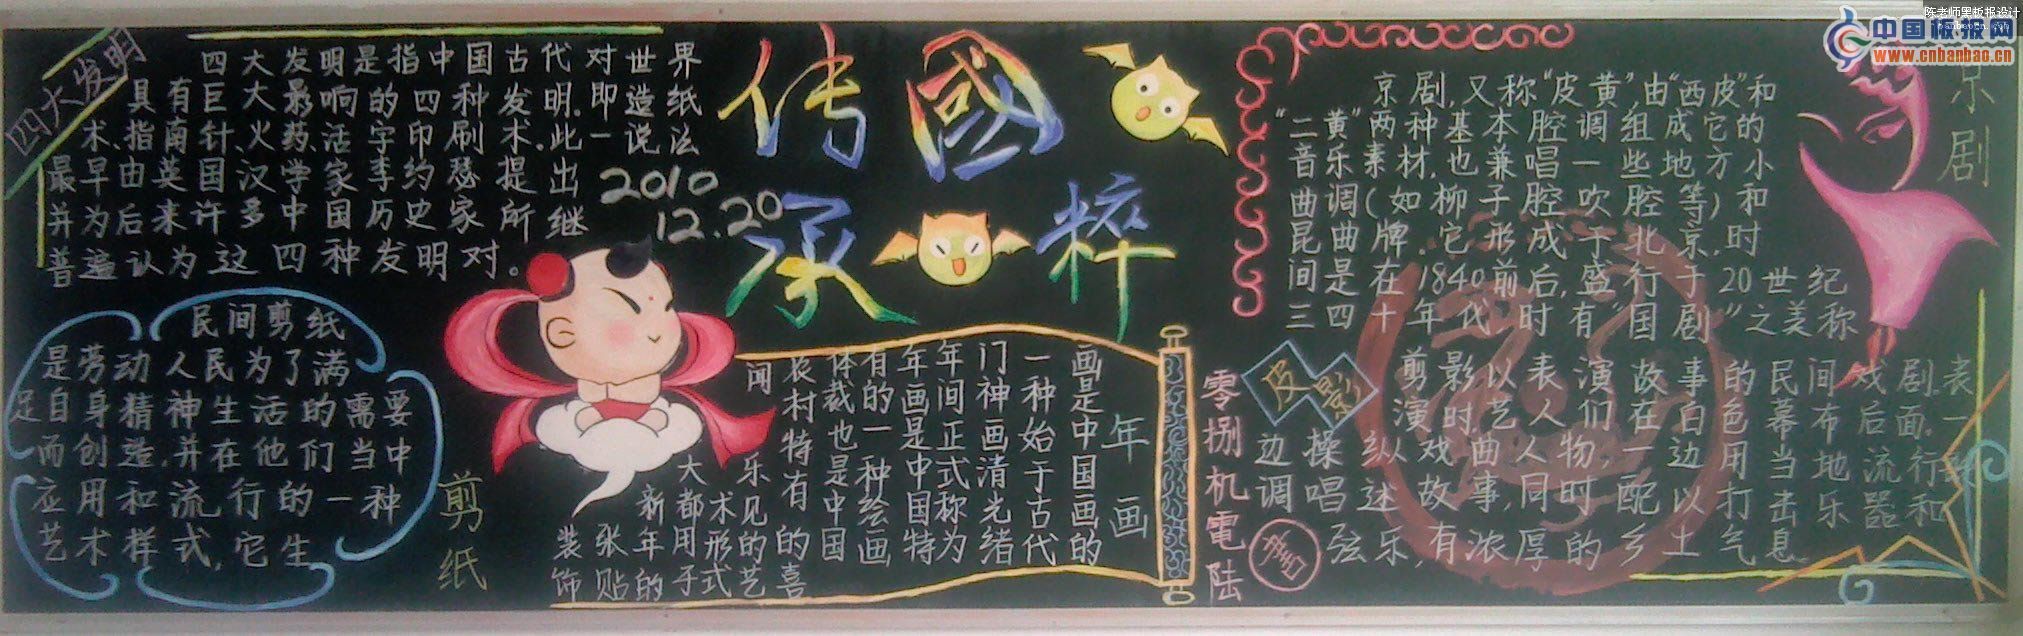 陈老师黑板报设计
banbao.chazidian.com
中国板报网
www.cnbanbao.cn
传承
國粹
2010
12.20
四大发明
四大发明是指中国古代对世界
具有巨大影响的四种发明.即造纸
术、指南针、火药、活字印刷术.此一说法
最早由英国汉学家李约瑟提出
并为后来许多中国历史家所继
普遍认为这四种发明对。
民间剪纸
是劳动人民为了满
足自身精神生活的需要
而创造,并在他们当中
应用和流行的一种
艺术样式,它生
剪纸
年画
画是中国画的
一种始于古代
门神画清光绪
年间正式称为
年画是中国特
有的一种绘画
体裁也是中国
农村特有的喜
闻乐见的艺
术形式
大都用于
新年的
张贴
装饰
京剧
京剧,又称“皮黄”,由“西皮”和
“二黄”两种基本腔调组成它的
音乐素材,也兼唱一些地方小
曲调(如柳子腔吹腔等)和
昆曲曲牌.它形成于北京,时
间是在1840前后,盛行于20世纪
三四十年代时有“国剧”之美称
皮影
剪影以表演故事的民间戏剧.表
演时,艺人们在白色幕布后面,一
边操纵戏曲人物,一边用当地流行
调唱述故事,同时配以打击乐器和
弦乐,有浓厚的乡土气息
零捌机電陆